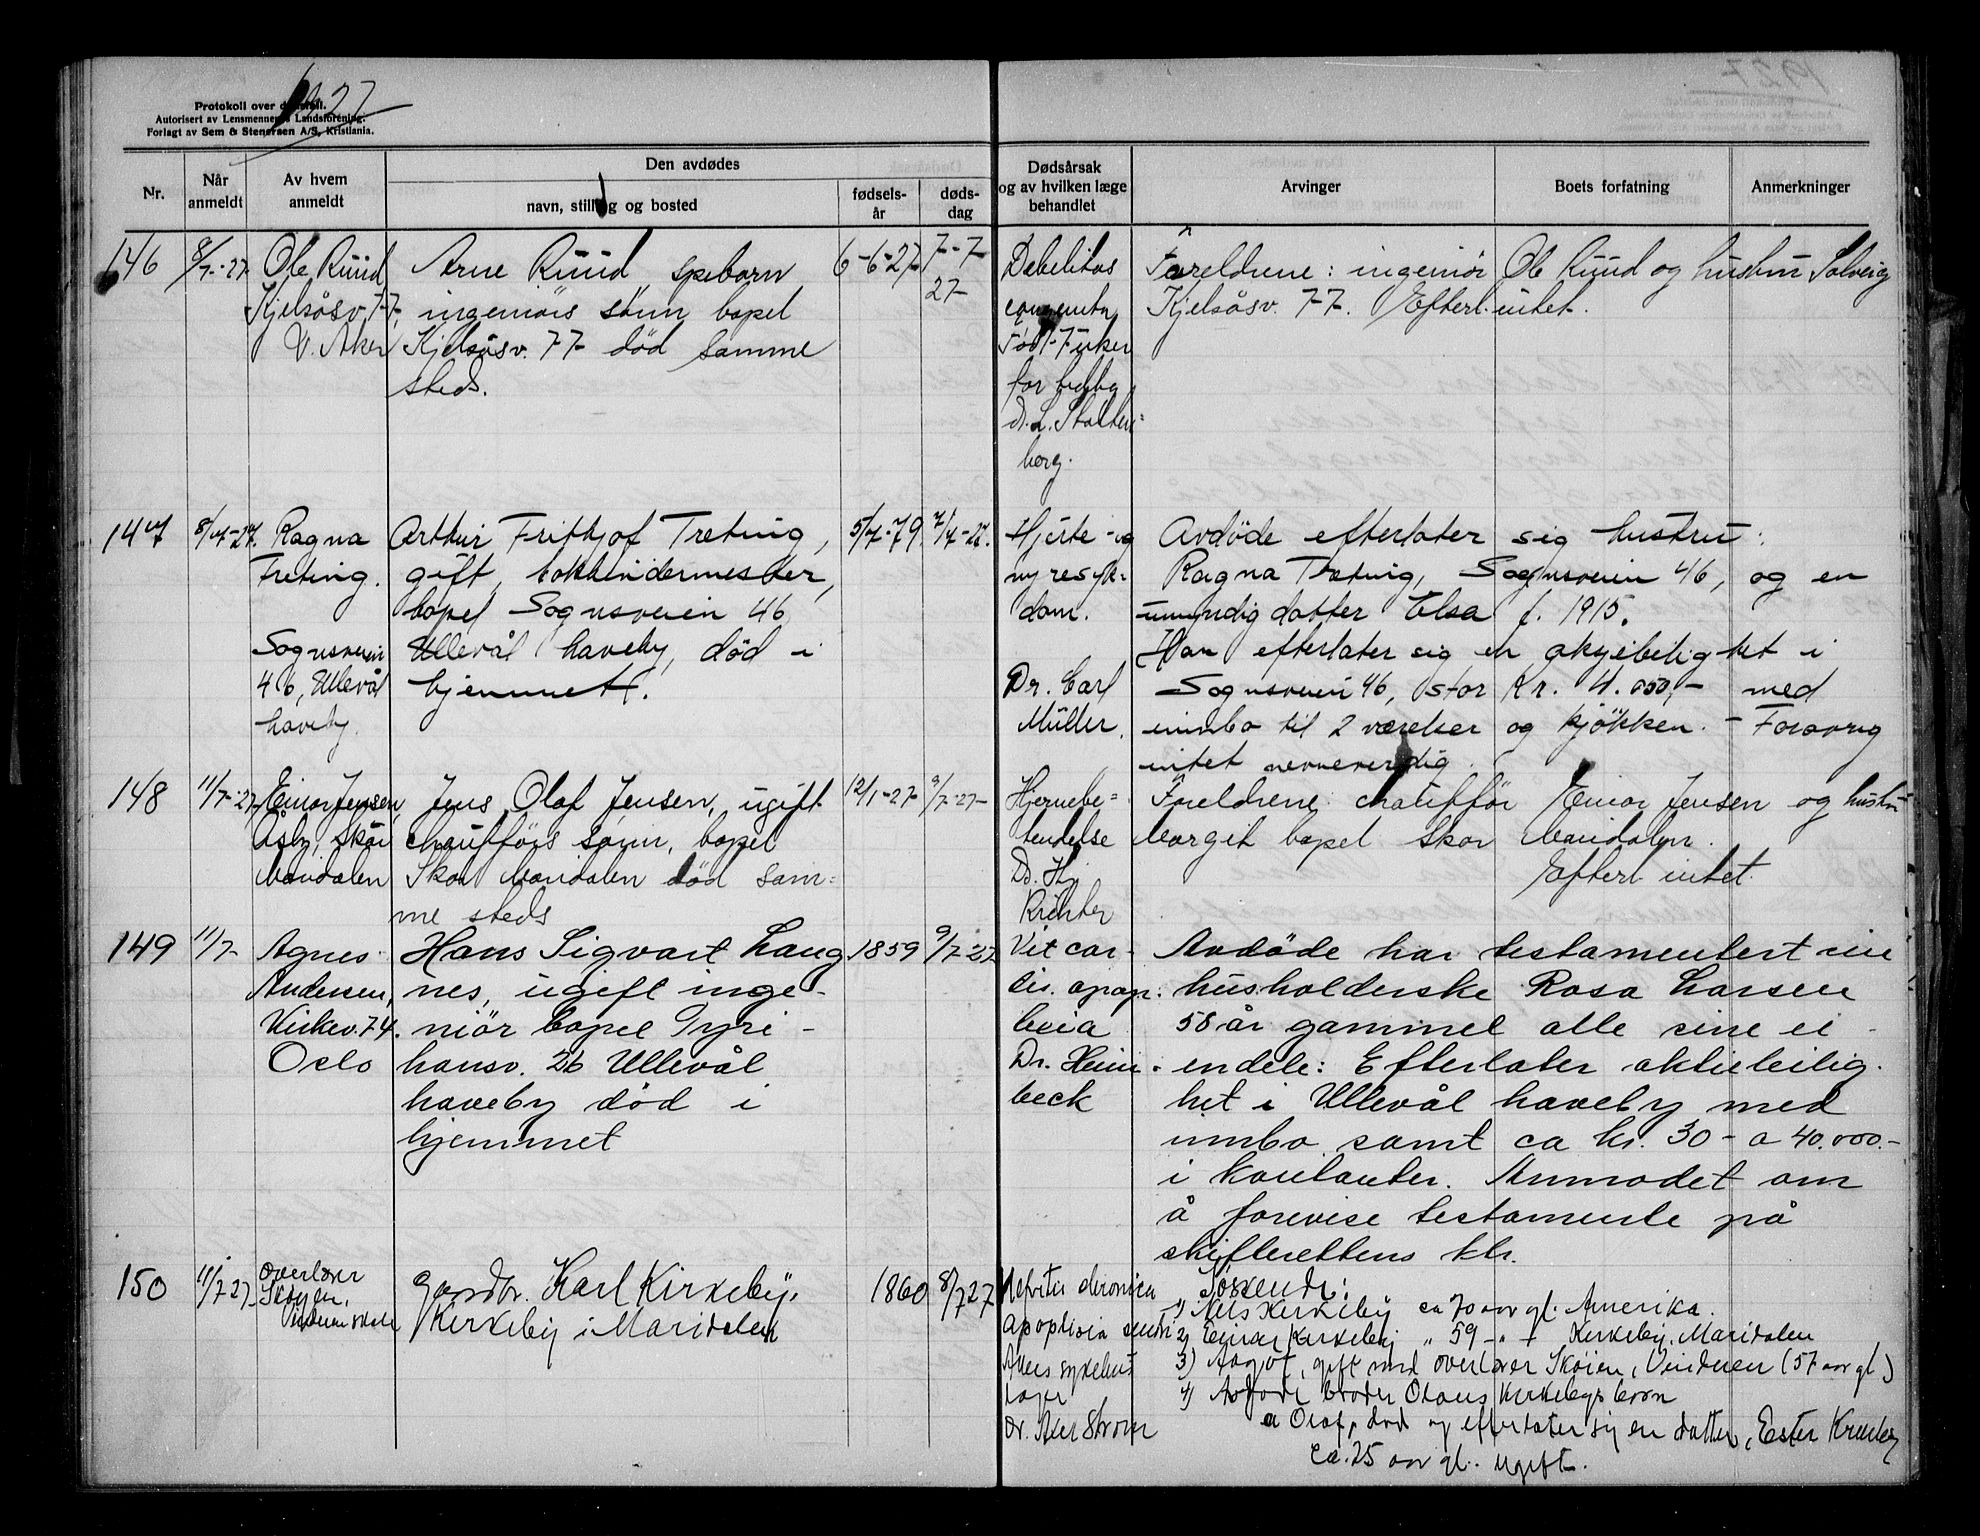 1927
Protokoll over dødsfall.
Autorisert av Lensmennenes Landsforening.
Forlagt av Sem & Stenersen A/S, Kristiania.
Nr.
Når anmeldt
Av hvem anmeldt
Den avdødes
navn, stilling og bosted
fødsels-år
døds-dag
Dødsårsak og av hvilken læge behandlet
Arvinger
Boets forfatning
Anmerkninger
146
8/7-27
Ole Ruud
Kjelsåsv. 77,
V. Aker
Arne Ruud spebarn
ingeniørs sønn bopel
Kjelsåsv. 77 død samme
steds.
6-6-27
7-7-
27
Debilitas
congenita
Født 7 uker
for tidlig
D. L. Stolten=
berg.
Foreldrene: ingeniør Ole Ruud og hustru Solveig
Kjelsåsv. 77. Efterl. intet.
147
8/7-27.
Ragna
Treting.
Sognsveien
46, Ullevål
haveby.
Arthur Frithjof Treting,
gift, bokbindermester,
bopel Sognsveien 46
Ullevål haveby, død i
hjemmet.
5/7-79.
7/7-27.
Hjerte- og
nyresyk=
dom.
Dr. Carl
Müller.
Avdøde efterlater sig hustru:
Ragna Treting, Sognsveien 46, og en
umyndig datter Elsa f. 1915.
Han efterlater sig en aksjeleilighet i
Sognsveien 46, stor Kr. 4.000,- med
innbo til 2 værelser og kjøkken. - Forøvrig
intet nevneverdig.
148
11/7-27
Einar Jensen,
Åsly, Skar
Maridalen
Jens Olaf Jensen, ugift
chaufførs sønn, bopel
Skar Maridalen død sam=
me steds
12/1-27
9/7-27-
Hjernebe=
tendelse
Dr. Hj.
Richter
Foreldrene chauffør Einar Jensen og hustru
Margit bopel Skar Maridalen.
Efterl. intet.
149
11/7-
Agnes
Andersen,
Kirkev. 74.
Oslo
Hans Sigvart Laug
nes, ugift inge-
niør bopel Tyri-
hansv. 26 Ullevål
haveby død i
hjemmet
1859
9/7-27
Vit. cor-
dis. apop-
lexia
Dr. Heim-
beck
Avdøde har testamentert sin
husholderske Rosa Larsen
58 år gammel alle sine ei-
endele: Efterlater aktieleilig-
het i Ullevål haveby med
innbo samt ca kr. 30- a 40.000.-
i kontanter. Anmodet om
å forevise testamente på
skifterettens ktr.
150
11/7 27
Overlærer
Skøyen,
Vinderen skole
Gardbr. Karl Kirkeby,
Kirkeby i Maridalen
1860
8/7 27
Nefritis chronica
Apoplexia
Akers sykehus
Dr. Axel Strøm
Søskende:
1) Nils Kirkeby ca 70 aar gl. Amerika.
2) Einar Kirkeby " 59 - " - Kirkeby, Maridalen
3) Aagot, gift med overlærer Skøien, Vinderen (57 aar gl)
4) Avdøde broder Olaus Kirkebys barn
a Olaf, død og efterlater sig en datter, Ester Kirkeby
ca. 25 aar gl. ugift.